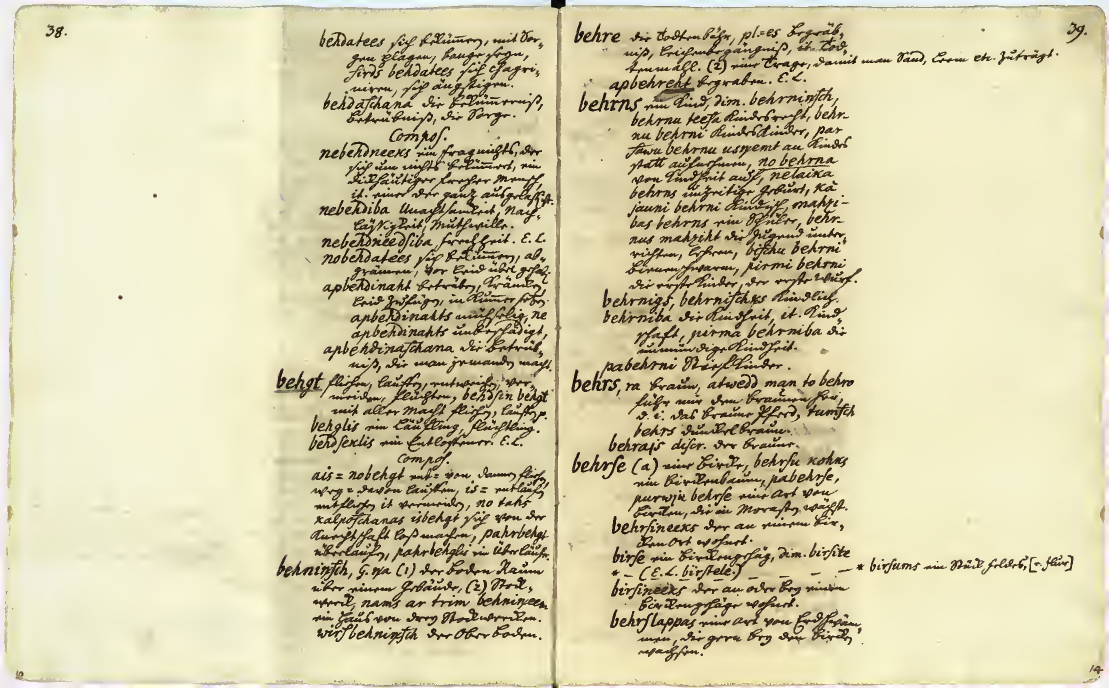 38.
behdatees sich bekümmern, mit Sor-
gen plagen, bange seyn,
sirds behdatees sich chagri-
niren, sich ängstigen.
behdaschana die Bekümmerniß,
Betrübniß, die Sorge.
Compos.
nebehdneeks ein fragnichts, der
sich um nichts bekümmert, ein
dickhäutiger frecher Mensch,
it. einer der ganz ausgelassen
nebehdiba Unachtsamkeit, Nach-
läßigkeit, Muthwille.
nebehdneedsiba Frechheit. E.L.
nobehdatees sich bekümmern, ab-
grämen, vor Leid übel
apbehdinaht betrüben, Kränken
Leid zufügen, in Kummer setzen
apbehdinahts mühselig, ne
apbehdinahts unbeschädigt,
apbehdinaschana die Betrüb-
niß, die man jemanden macht.
behgt fliehen, lauffen, entweichen, ver-
meiden, flüchten, behdsin behgt
mit aller Macht fliehen, lauffen
behglis ein Läufling, Flüchtling.
behdseklis ein Entloffener. E.L.
Compos.
ais= nobehgt ent= von dannen fliehen
weg= davon lauffen, is= entlaufen
entfliehen it vermeiden, no tahs
kalposchanas isbehgt sich von der
Knechtschaft loß machen, pahrbehgt
überlaufen, pahrbehglis ein Überläufer.
behninsch, G. ņa (1) der Boden Raum
über einem Gebäude, (2) Stock-
werk, nams ar trim behnineem
ein Hauß von drey Stockwerken.
wirsbehninsch der Ober boden.
39.
behre die Todtenbahre, pl=es Begräb-
niß, Leichenbegängniß, it. Tod-
tenmahl. (2) eine Trage, damit man Sand, Leem etc. zuträgt.
apbehreht begraben. E.L.
behrns ein Kind, dim. behrninsch,
behrnu teesa Kindesrecht, behr-
nu behrni Kindeskinder, par
sawu behrnu usņemt an Kindes
statt aufnehmen, no behrna
von Kindheit auf, nelaika
behrns unzeitige Geburt, kà
jauni behrni Kindisch, mahzi-
bas behrns ein Schüler, behr-
nus mahziht die Jugend unter-
richten, lehren, bischu behrni
Bienenschwarm, pirmi behrni
die erste Kinder, der erste Wurf.
behrnigs, behrnischķs Kindlich,
behrniba die Kindheit, it. Kind-
schaft, pirma behrniba die
unmündige Kindheit.
pabehrni Stief Kinder.
behrs, ra braun, atwedd man to behro
führ mir den braunen her,
d. i. das braune Pferd, tumsch
behrs dunckelbraun.
behrais discr. der braune.
behrse (a) eine Bircke, behrsu kohks
ein Birckenbaum, pabehrse,
purwja behrse eine Art von
Bircken, die in Morasten wächst.
behrsineeks der an einem Bir-
ckenOrt wohnet.
birse ein Birckengehäg, dim. birsite
* – (E.L. birstele.) – – – – * birsums ein Stück Feldes, [= Flur]
birsineeks der an oder bey einem
Birckengehäge wohnet.
behrslappas eine Art von Erdschwäm-
men, die gern bey den Bircken
wachsen.
14